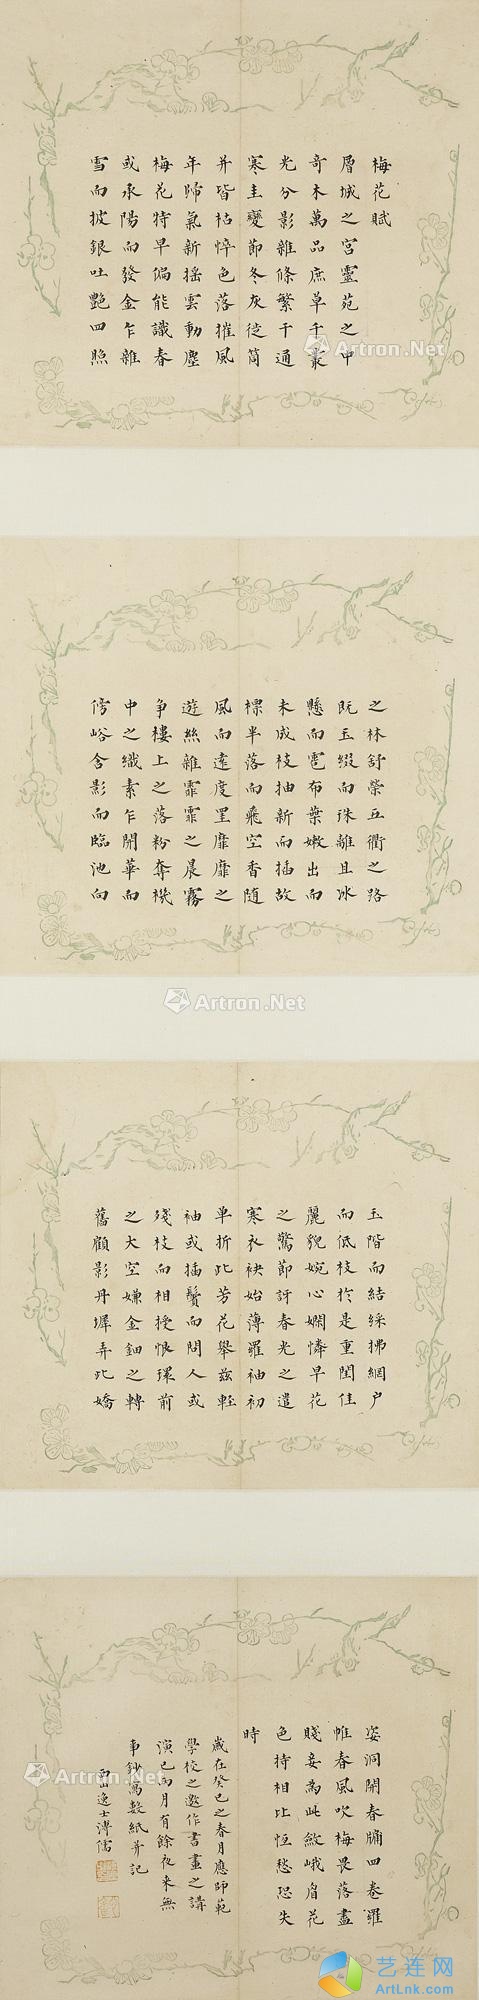 梅花賦
層城之宮靈苑之中
奇木萬品庶草千叢
光分影雜條繁干通
寒圭變節冬灰徙筒
并皆枯悴色落摧風
年歸氣新搖雲動塵
梅花特早偏能識春
或承陽而發金乍雜
雪而披銀吐艷四照
之林舒榮五衢之路
既玉綴而珠離且冰
懸而雹布葉嫩出而
未成枝抽新而插故
標半落而飛空香隨
風而遠度里靡靡之
遊絲雜霏霏之晨霧
爭樓上之落粉奪機
中之織素乍開華而
傍峪含影而臨池向
玉階而結綵拂網户
而低枝於是重閨佳
麗貌婉心嫻憐早花
之驚節訝春光之遣
寒衣袂始薄羅袖初
單折此芳花舉兹輕
袖或插鬢而問人或
殘枝而相授恨環前
之大空嫌金鈿之轉
舊顧影丹墀弄此嬌
姿洞開春牖四卷羅
帷春風吹梅畏落盡
賤妾為此斂峨眉花
色持相比恒愁恐失
時
歲在癸巳之春月應師範
學校之邀作書畫之講
演已兩月有餘夜來無
事鈔寫數紙并記
西山逸士溥儒
Artron.Net
Artron.Net
Artron.Net
Artron.Net
艺连网
ArtLnk.com